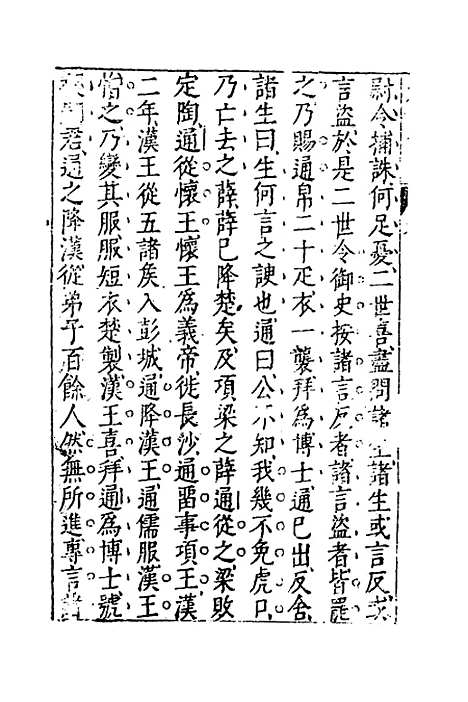 尉令捕誅何足憂二世喜盡問諸生諸生或言反或
言盜於是二世令御史按諸言反者諸言盜者皆罷
之乃賜通帛二十疋衣一襲拜為博士通已出反舍
諸生曰生何言之諛也通曰公不知我幾不免虎口
乃亡去之薛薛已降楚矣及項梁之薛通從之梁敗
定陶通從懷王懷王為義帝徙長沙通留事項王漢
二年漢王從五諸矦入彭城通降漢王通儒服漢王
憎之乃變其服服短衣楚製漢王喜拜通為博士號
君通之降漢從弟子百餘人然無所進專言